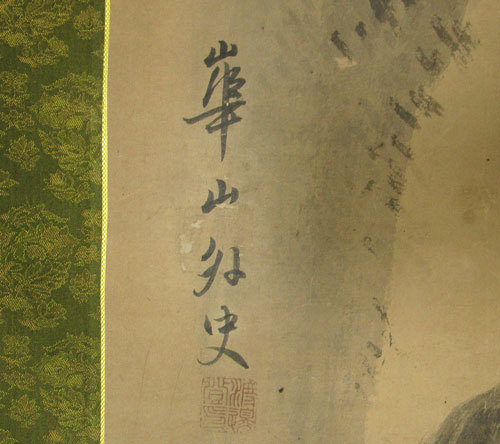 崋山外史